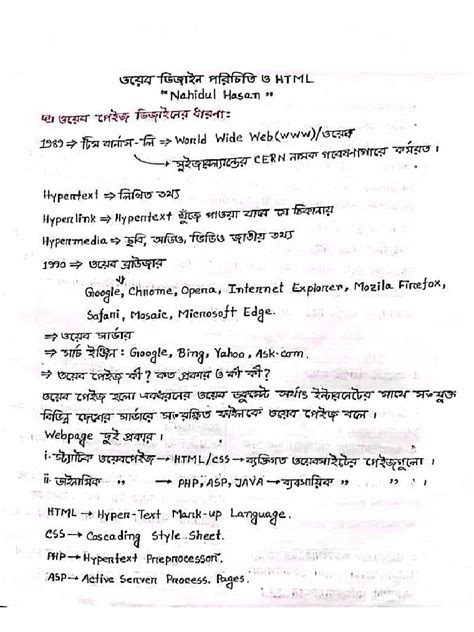 ওয়েব ডিজাইন পরিচিতি ও HTML
"Nahidul Hasan"
ওয়েব পেইজ ডিজাইনের ধারনা:
1989 ⇒ টিম বার্নাস-লি ⇒ World Wide Web (WWW)/ওয়েব
→ সুইজারল্যান্ডের CERN নামক গবেষণাগারে কর্মরত।
Hypertext ⇒ লিখিত তথ্য
Hyperlink ⇒ Hypertext খুঁজে পাওয়া যাবে যে ঠিকানায়
Hypermedia ⇒ ছবি, অডিও, ভিডিও জাতীয় তথ্য
1990 ⇒ ওয়েব ব্রাউজার
Google, Chrome, Opera, Internet Explorer, Mozila Firefox,
Safari, Mosaic, Microsoft Edge.
⇒ ওয়েব সার্ভার
⇒ সার্চ ইঞ্জিন: Google, Bing, Yahoo, Ask.com.
⇒ ওয়েব পেইজ কী? কত প্রকার ও কী কী?
ওয়েব পেইজ হলো একধরনের ওয়েব ডকুমেন্ট অর্থাৎ ইন্টারনেটের সাথে সংযুক্ত
বিভিন্ন দেশের সার্ভারে সংরক্ষিত ফাইলকে ওয়েব পেইজ বলে।
Webpage দুই প্রকার।
i. স্ট্যাটিক ওয়েবপেইজ → HTML/CSS → ব্যক্তিগত ওয়েবসাইটের পেইজগুলো।
ii. ডাইনামিক " → PHP, ASP, JAVA → ব্যবসায়িক " " ।
HTML → Hyper-Text Mark-up Language.
CSS → Cascading Style Sheet.
PHP → Hypertext Preprocessor.
ASP → Active Server Process. Pages.